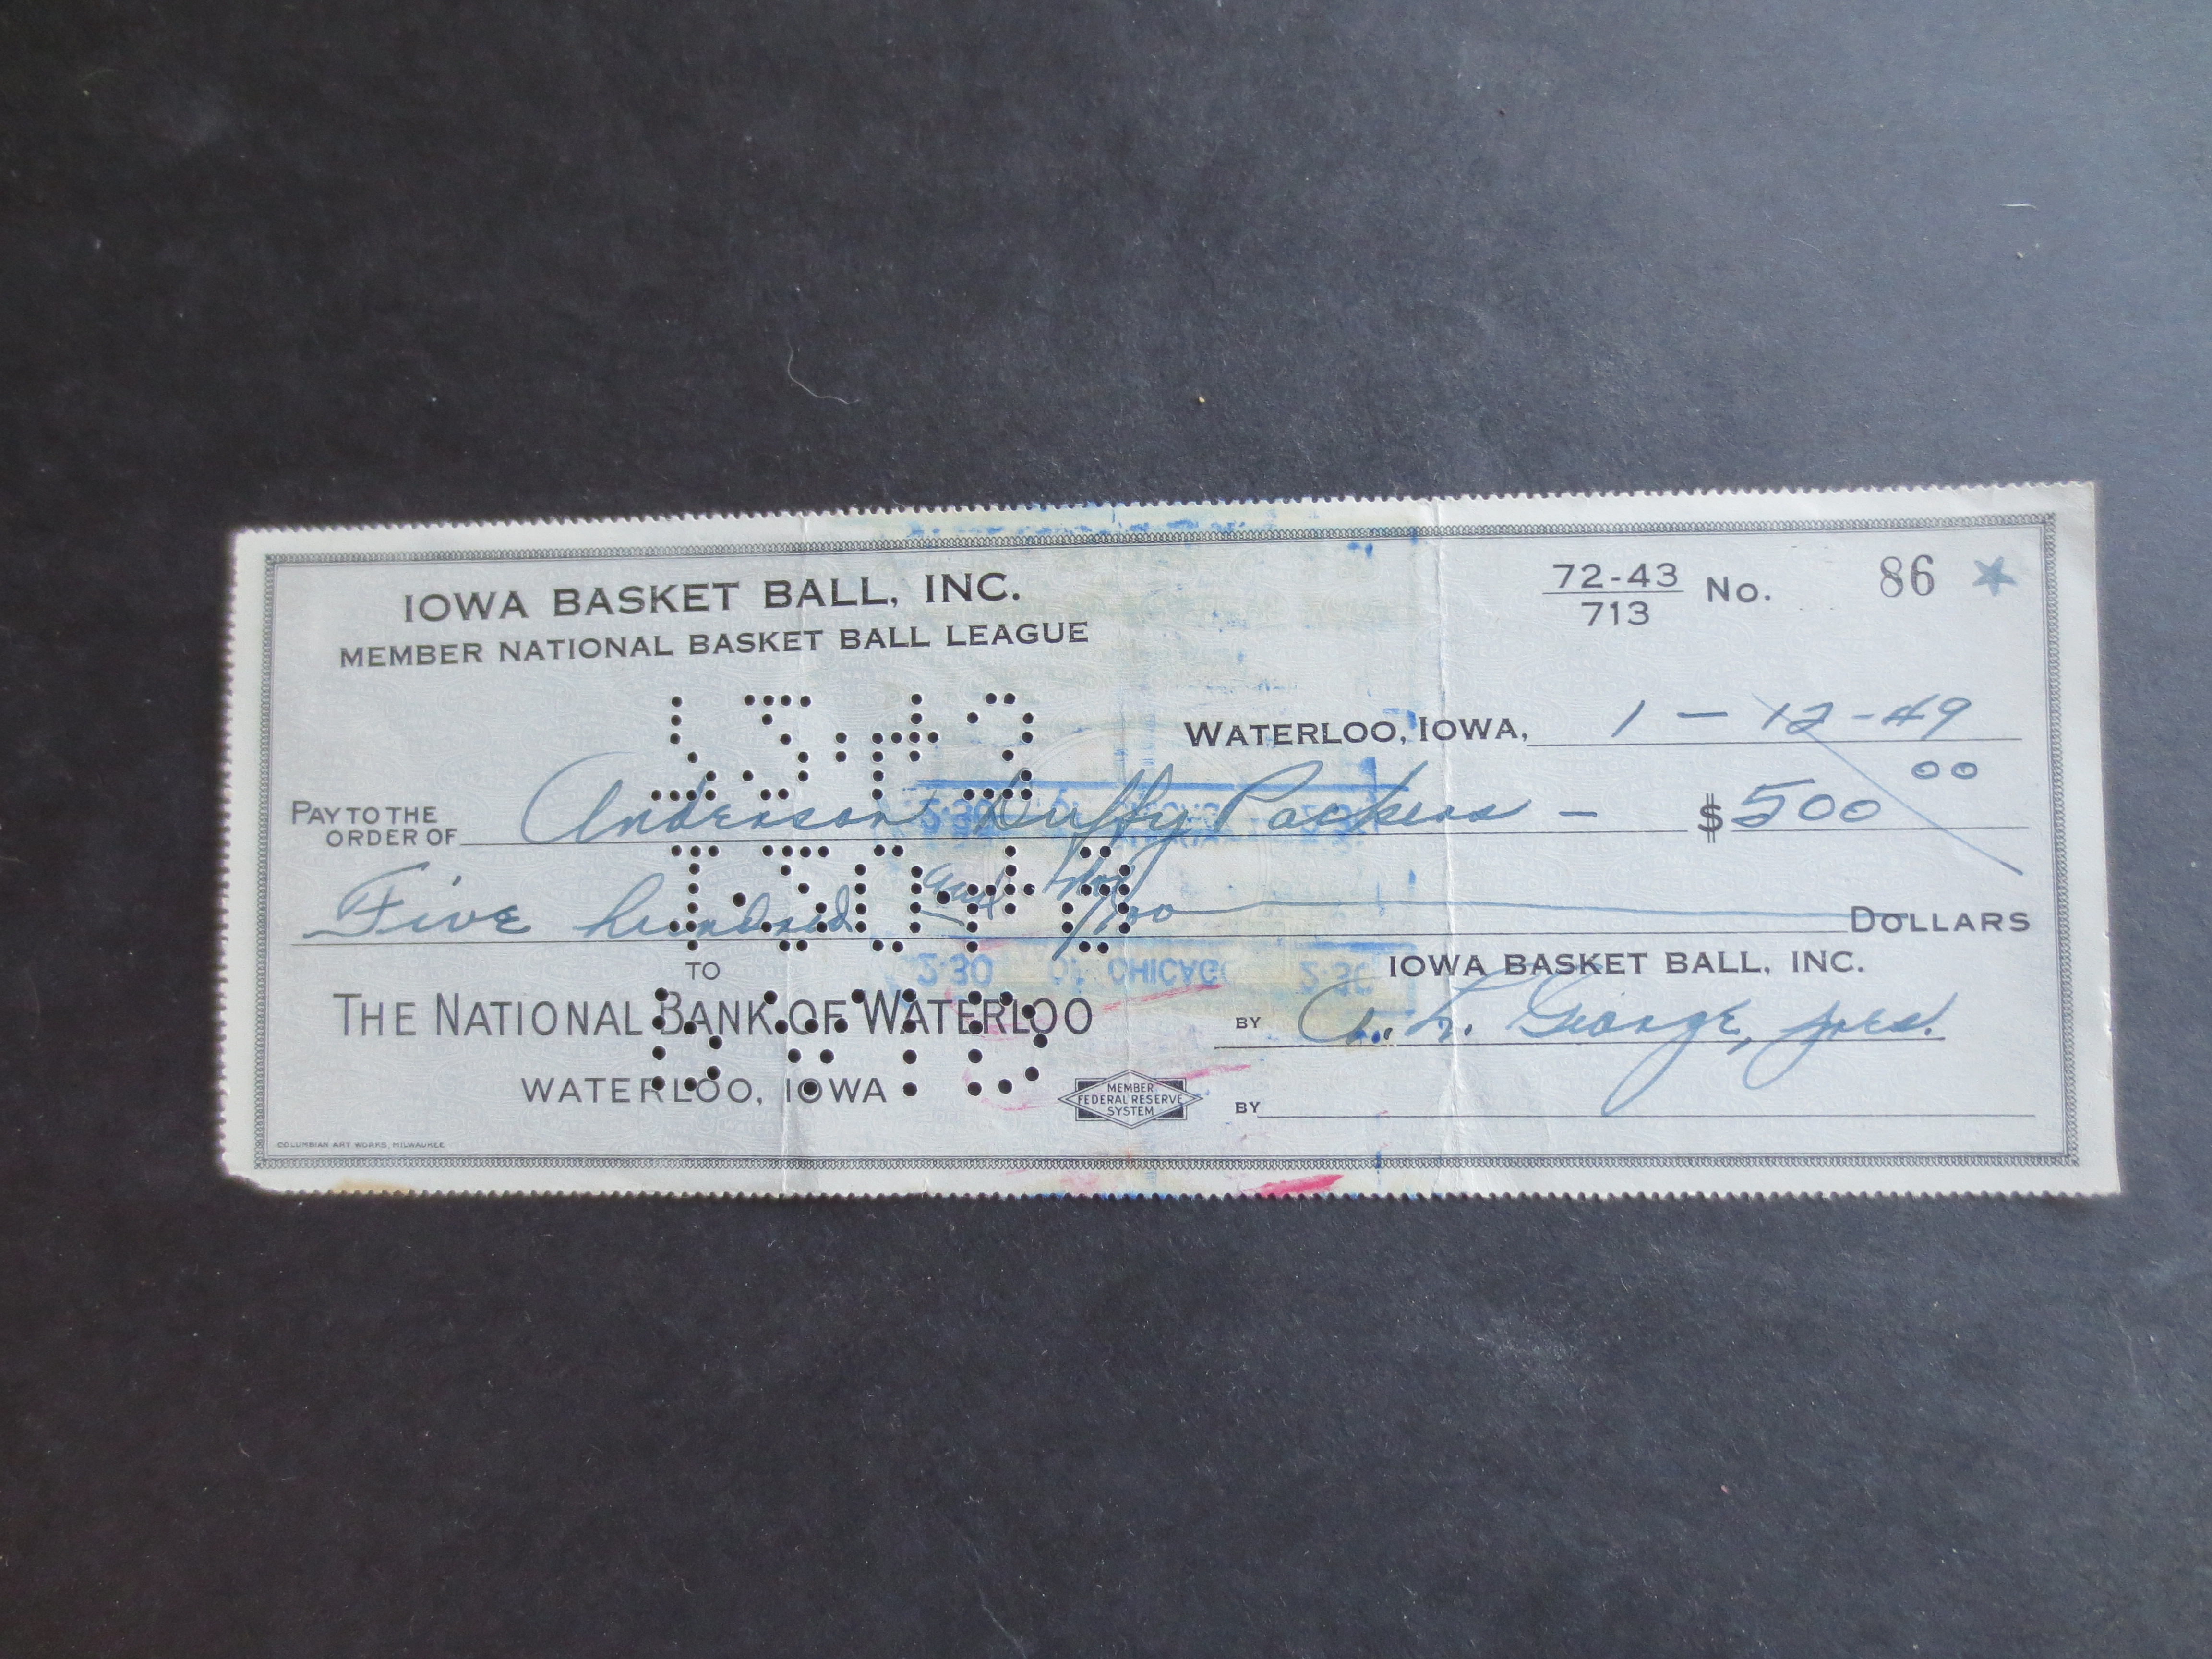 IOWA BASKET BALL, INC.
MEMBER NATIONAL BASKET BALL LEAGUE
72-43
713
No. 86
WATERLOO, IOWA, 1 - 12 - 49
PAY TO THE
ORDER OF Anderson Duffy Packers - $ 500 00
Five hundred and no/100 DOLLARS
TO
THE NATIONAL BANK OF WATERLOO
WATERLOO, IOWA
2:30 OF CHICAGO 2:30
IOWA BASKET BALL, INC.
BY L. George, pres.
MEMBER
FEDERAL RESERVE
SYSTEM
BY
COLUMBIAN ART WORKS, MILWAUKEE